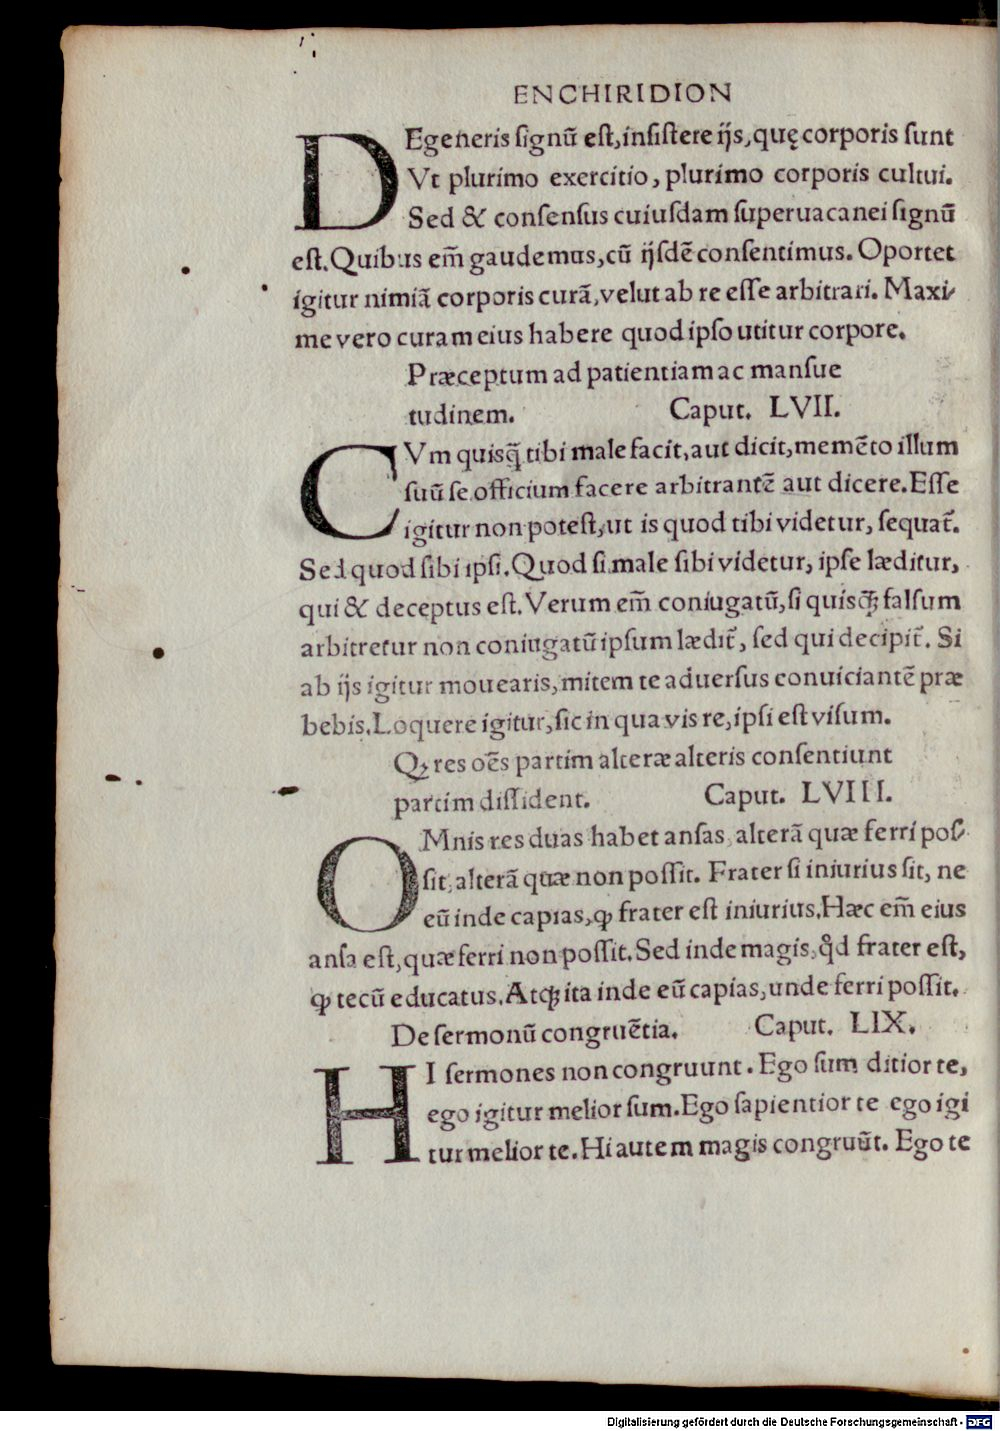 ENCHIRIDION
DEgeneris ſignū eſt, inſiſtere ijs, quę corporis ſunt
Vt plurimo exercitio, plurimo corporis cultui.
Sed & conſensus cuiuſdam ſuperuacanei ſignū
eſt. Quibus em̄ gaudemus, cū ijſdē conſentimus. Oportet
igitur nimiā corporis curā, velut ab re eſſe arbitrari. Maxi⸗
me vero curam eius habere quod ipſo utitur corpore.
Præceptum ad patientiam ac manſue
tudinem. Caput. LVII.
CVm quisq̄ tibi male facit, aut dicit, memēto illum
ſuū ſe officium facere arbitrantē aut dicere. Eſſe
igitur non poteſt, ut is quod tibi videtur, ſequat᷑.
Sed quod ſibi ipſi. Quod ſi male ſibi videtur, ipſe læditur,
qui & deceptus eſt. Verum em̄ coniugatū, ſi quisqꝫ falſum
arbitretur non coniugatū ipſum lædit᷑, ſed qui decipit᷑. Si
ab ijs igitur mouearis, mitem te aduerſus conuiciantē præ
bebis. Loquere igitur, ſic in qua vis re, ipſi eſt viſum.
Qꝫ res oēs partim alteræ alteris conſentiunt
partim diſſident. Caput. LVIII.
OMnis res duas habet anſas, alterā quæ ferri poſ⸗
ſit, alterā quæ non poſſit. Frater ſi iniurius ſit, ne
eū inde capias, ꝙ frater eſt iniurius. Hæc em̄ eius
anſa eſt, quæ ferri non poſſit. Sed inde magis, qd̓ frater eſt,
ꝙ tecū educatus. Atqꝫ ita inde eū capias, unde ferri poſſit.
De ſermonū congruētia. Caput. LIX.
HI ſermones non congruunt. Ego ſum ditior te,
ego igitur melior ſum. Ego ſapientior te ego igi
tur melior te. Hi autem magis congruūt. Ego te
Digitalisierung gefördert durch die Deutsche Forschungsgemeinschaft - DFG